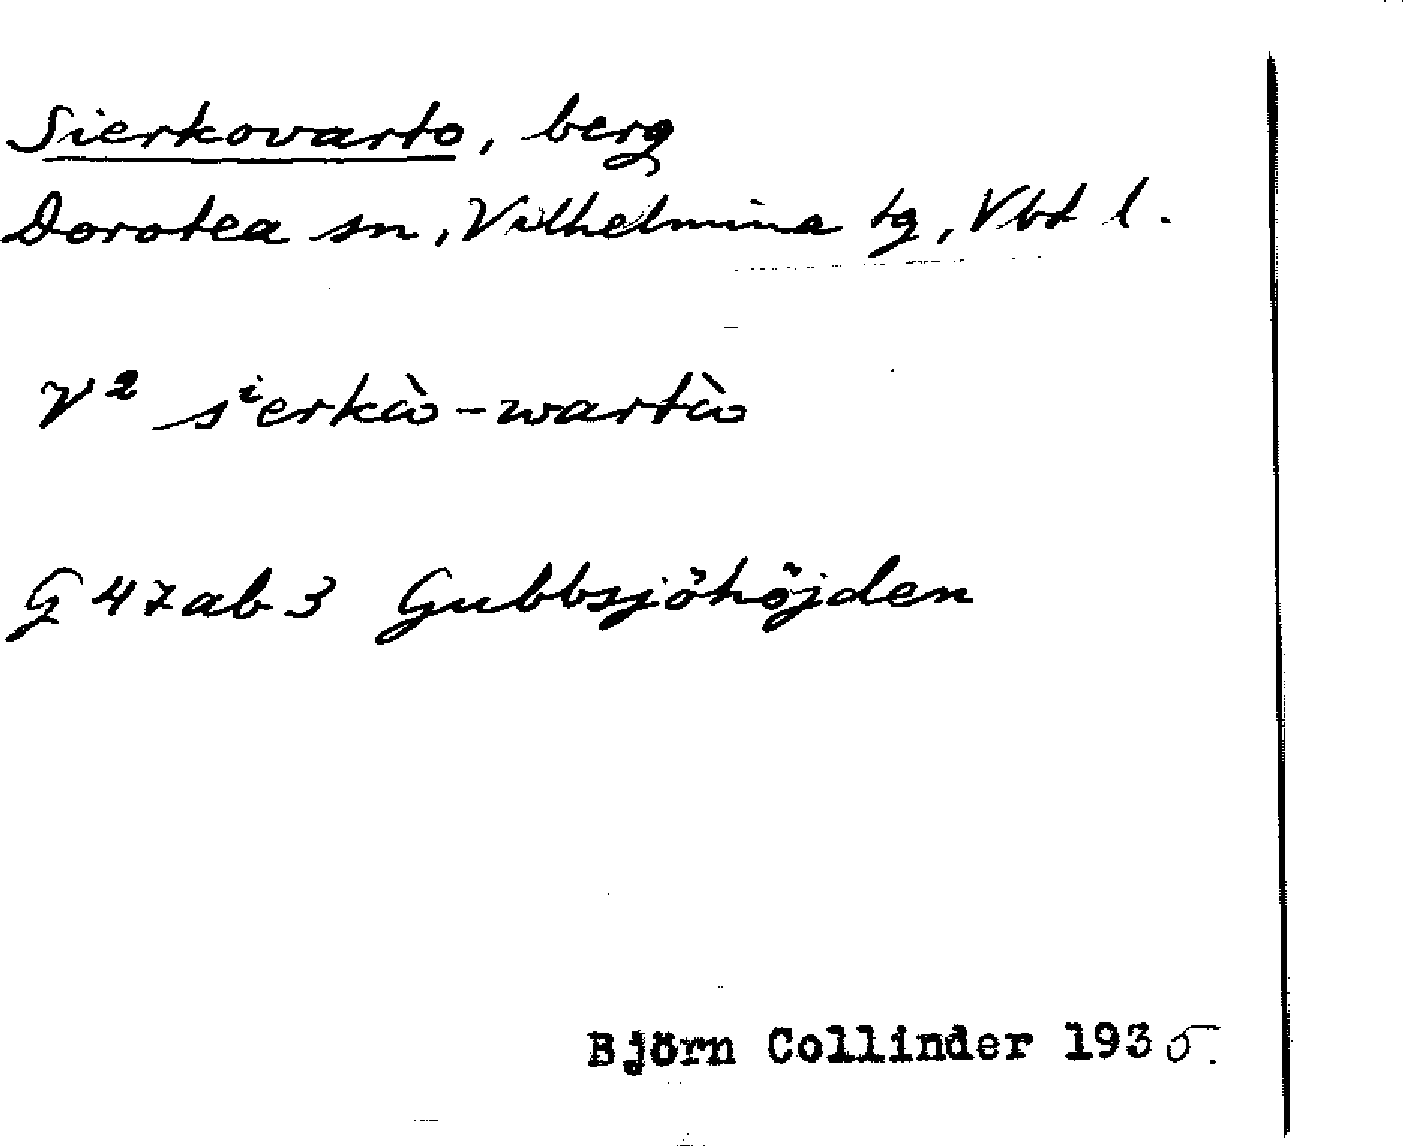 Sierkovarto, berg
Dorotea sn, Vilhelmina tg, Vbt l.
V² sⁱerkὼ-wartὼ
G 47ab3 Gubbsjöhöjden
Björn Collinder 1935.